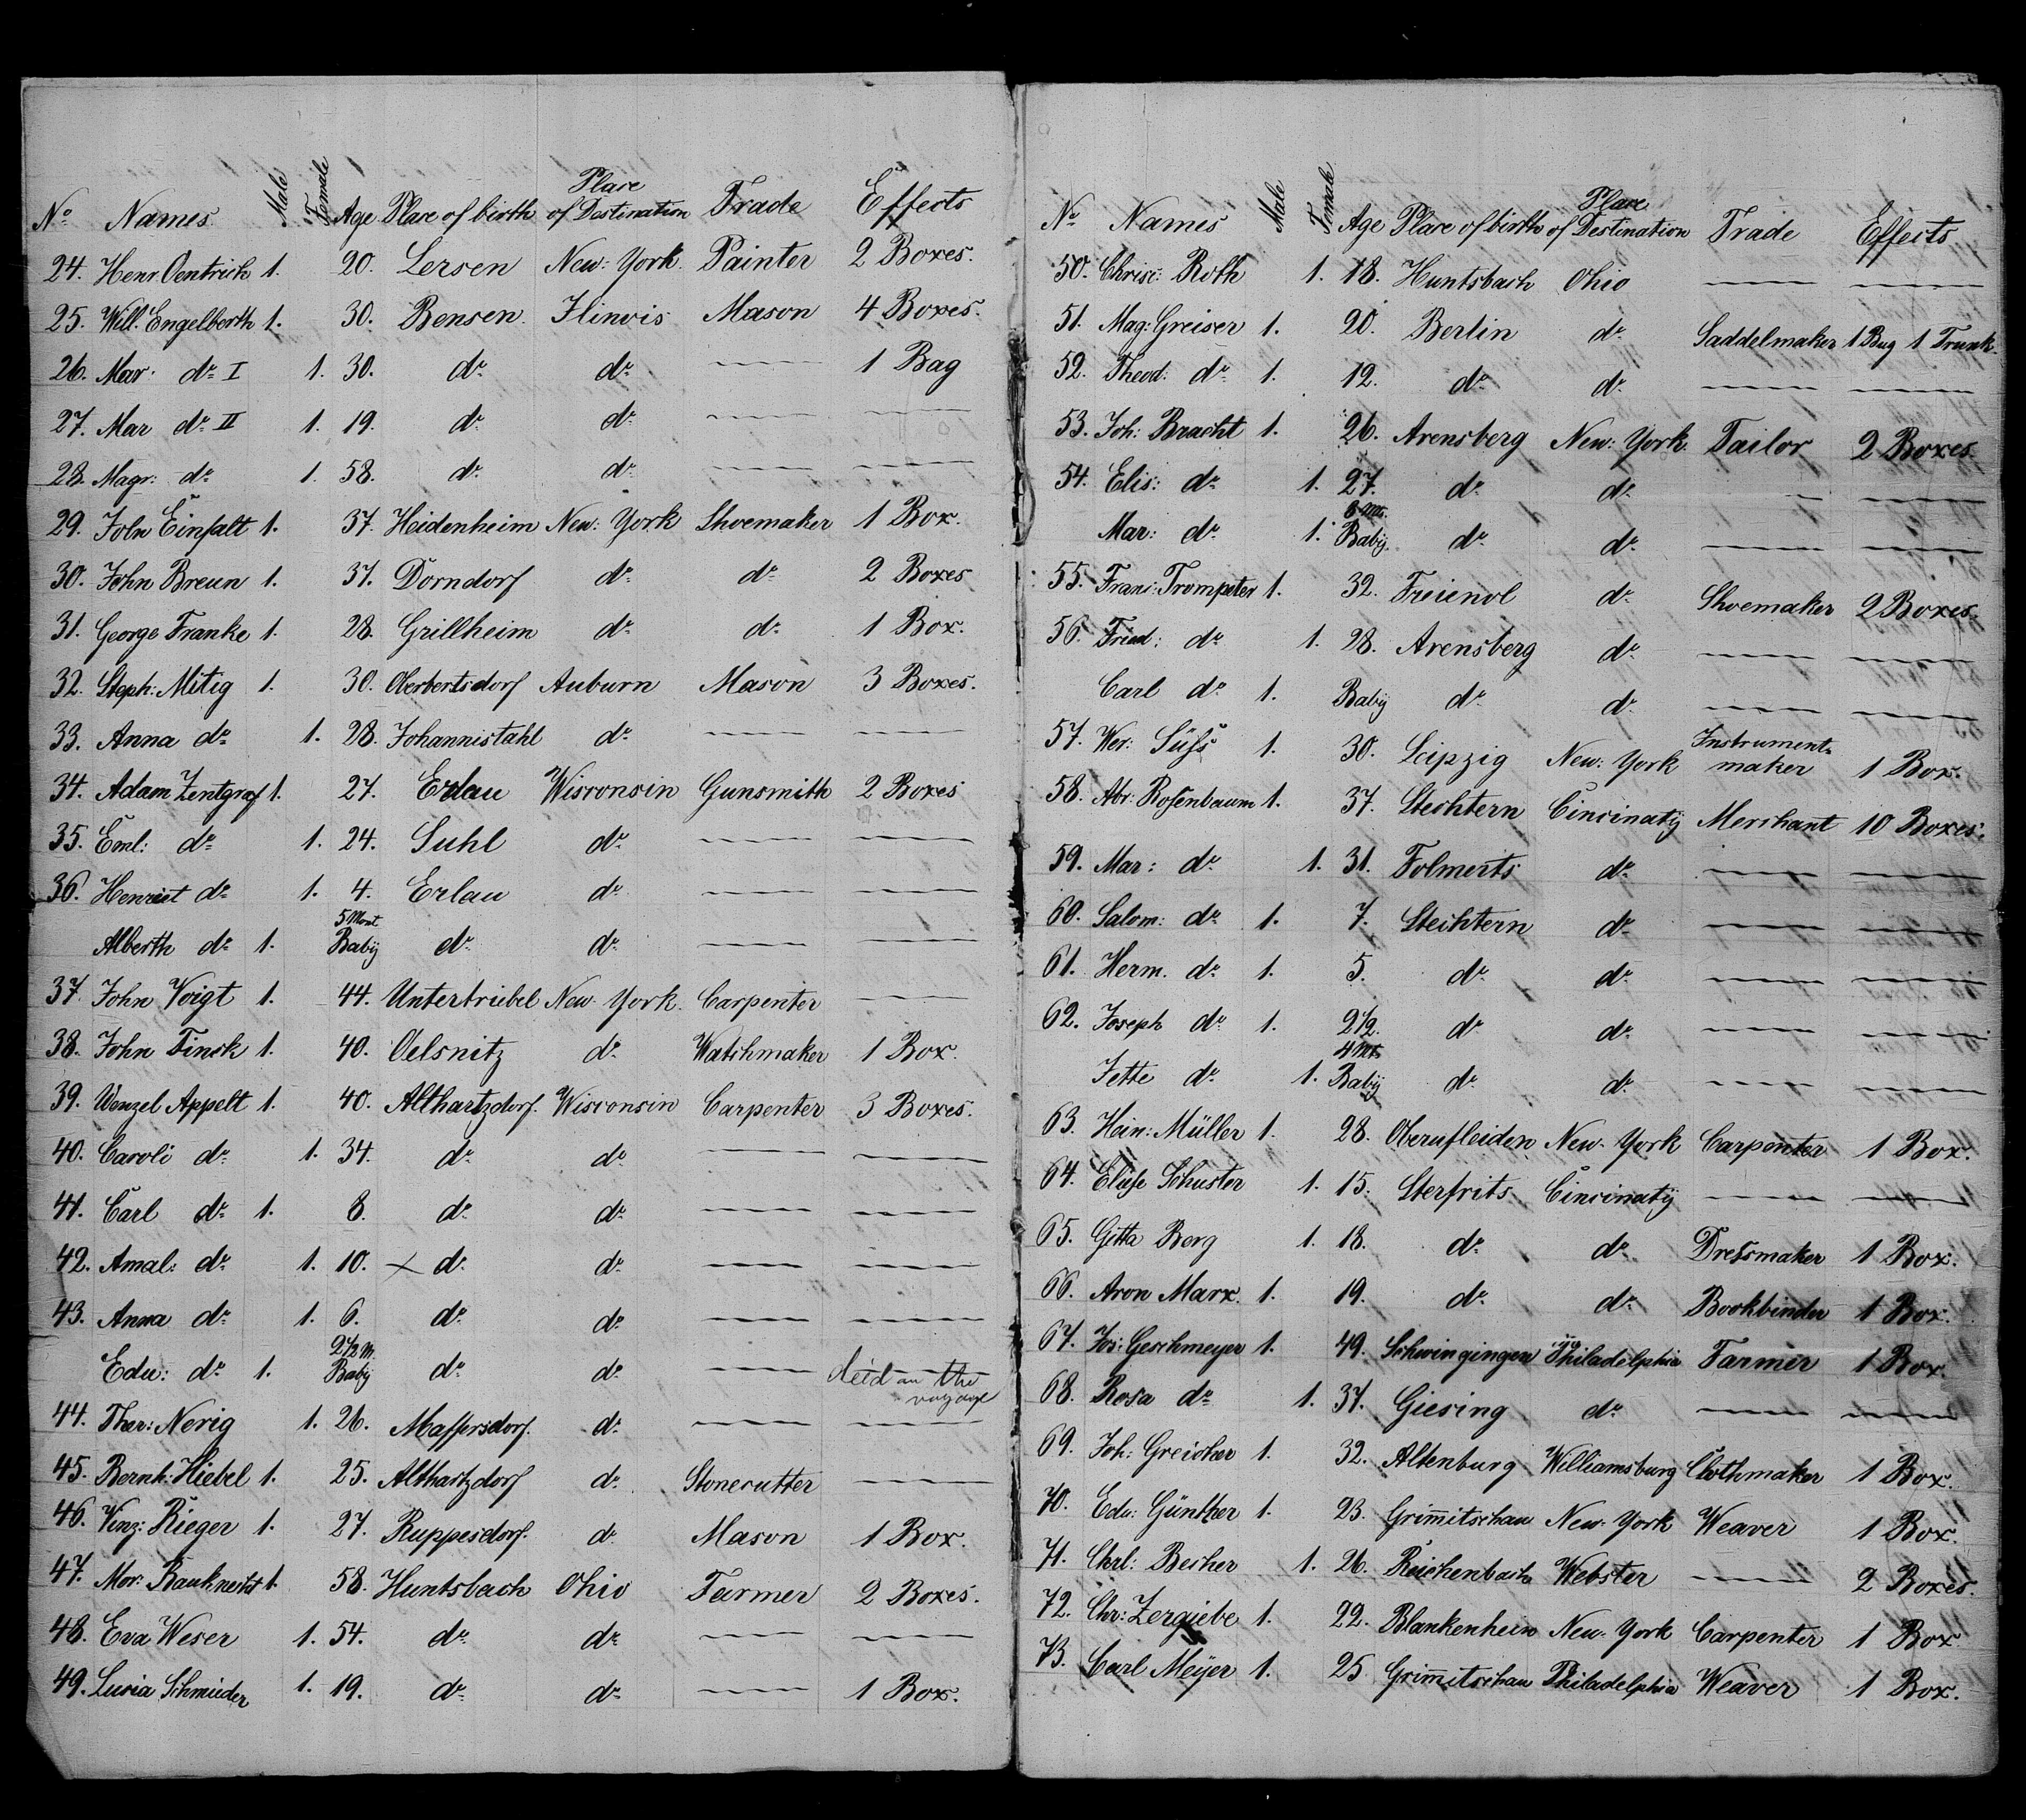 No Names. Male Female Age Place of birth Place of Destination Trade Effects
24. Henr. Oentrich 1. 20. Lersen New: York. Painter 2 Boxes.
25. Will. Engelberth 1. 30. Bensen. Ilinois Mason 4 Boxes.
26. Mar: do I 1. 30. do do — 1 Bag
27. Mar do II 1. 19. do do — —
28. Magr: do 1. 58. do do — —
29. John Einfalt 1. 37. Heidenheim New: York Shoemaker 1 Box.
30. John Breun 1. 37. Dorndorf do do 2 Boxes
31. George Franke 1. 28. Grillheim do do 1 Box.
32. Steph: Mitig 1. 30. Oberbertsdorf Auburn Mason 3 Boxes.
33. Anna do 1. 28. Johannistahl do — —
34. Adam Zentgraf 1. 27. Erlau Wisconsin Gunsmith 2 Boxes
35. Eml: do 1. 24. Suhl do — —
36. Henriet do 1. 4. Erlau do — —
Alberth do 1. 5 Mont Baby do do — —
37. John Voigt 1. 44. Untertriebel New: York. Carpenter —
38. John Finck 1. 40. Oelsnitz do Watchmaker 1 Box.
39. Wenzel Appelt 1. 40. Althartzdorf. Wisconsin Carpenter 3 Boxes.
40. Caroli do 1. 34. do do — —
41. Carl do 1. 8. do do — —
42. Amal: do 1. 10. x do do — —
43. Anna do 1. 6. do do — —
Edu: do 1. 2 1/2 M. Baby do do — deid on the voyage
44. Ther: Nerig 1. 26. Maffersdorf. do — —
45. Bernh: Hiebel 1. 25. Althartzdorf do Stonecutter —
46. Vinz: Rieger 1. 27. Ruppesdorf. do Mason 1 Box.
47. Mor: Bauknecht 1. 58. Huntsbach Ohio Farmer 2 Boxes.
48. Eva Weser 1. 54. do do — —
49. Lucia Schmieder 1. 19. do do — 1 Box.
No Names Male Female Age Place of birth Place of Destination Trade Effects
50. Chrisc: Roth 1. 18. Huntsbach Ohio — —
51. Mag: Greiser 1. 20. Berlin do Saddelmaker 1 Bag 1 Trunk.
52. Theod: do 1. 12. do do — —
53. Joh: Bracht 1. 26. Arensberg New: York. Tailor 2 Boxes
54. Elis: do 1. 27. do do — —
Mar: do 1. Baby do do — —
55. Franc: Trompeter 1. 32. Freienol do Shoemaker 2 Boxes.
56. Fried: do 1. 28. Arensberg do — —
Carl do 1. Baby do do — —
57. Wer: Süfs 1. 30. Leipzig New: York Instrument- maker 1 Box.
58. Abr: Rosenbaum 1. 37. Stechtern Cincinaty Merchant 10 Boxes.
59. Mar: do 1. 31. Folmerts do — —
60. Salom: do 1. 7. Stechtern do — —
61. Herm. do 1. 5. do do — —
62. Joseph do 1. 2 1/2. do do — —
Jette do 1. 4 Mt. Baby do do — —
63. Hein: Müller 1. 28. Oberufleiden New: York Carpenter 1 Box.
64. Elise Schuster 1. 15. Sterfrits Cincinaty — —
65. Gitta Berg 1. 18. do do Dressmaker 1 Box.
66. Aron Marx. 1. 19. do do Bookbinder 1 Box.
67. Jos: Geschmeyer 1. 49. Schwingingen Philadelphia Farmer 1 Box.
68. Rosa do 1. 37. Giesing do — —
69. Joh: Greicher 1. 32. Altenburg Williamsburg Clothmaker 1 Box.
70. Edu: Günther 1. 23. Grimitschau New: York Weaver 1 Box.
71. Chrl: Becher 1. 26. Reichenbach Webster — 2 Boxes.
72. Chr: Zergiebe 1. 22. Blankenhein New: York Carpenter 1 Box
73. Carl Meyer 1. 25. Grimitschau Philadelphia Weaver 1 Box.